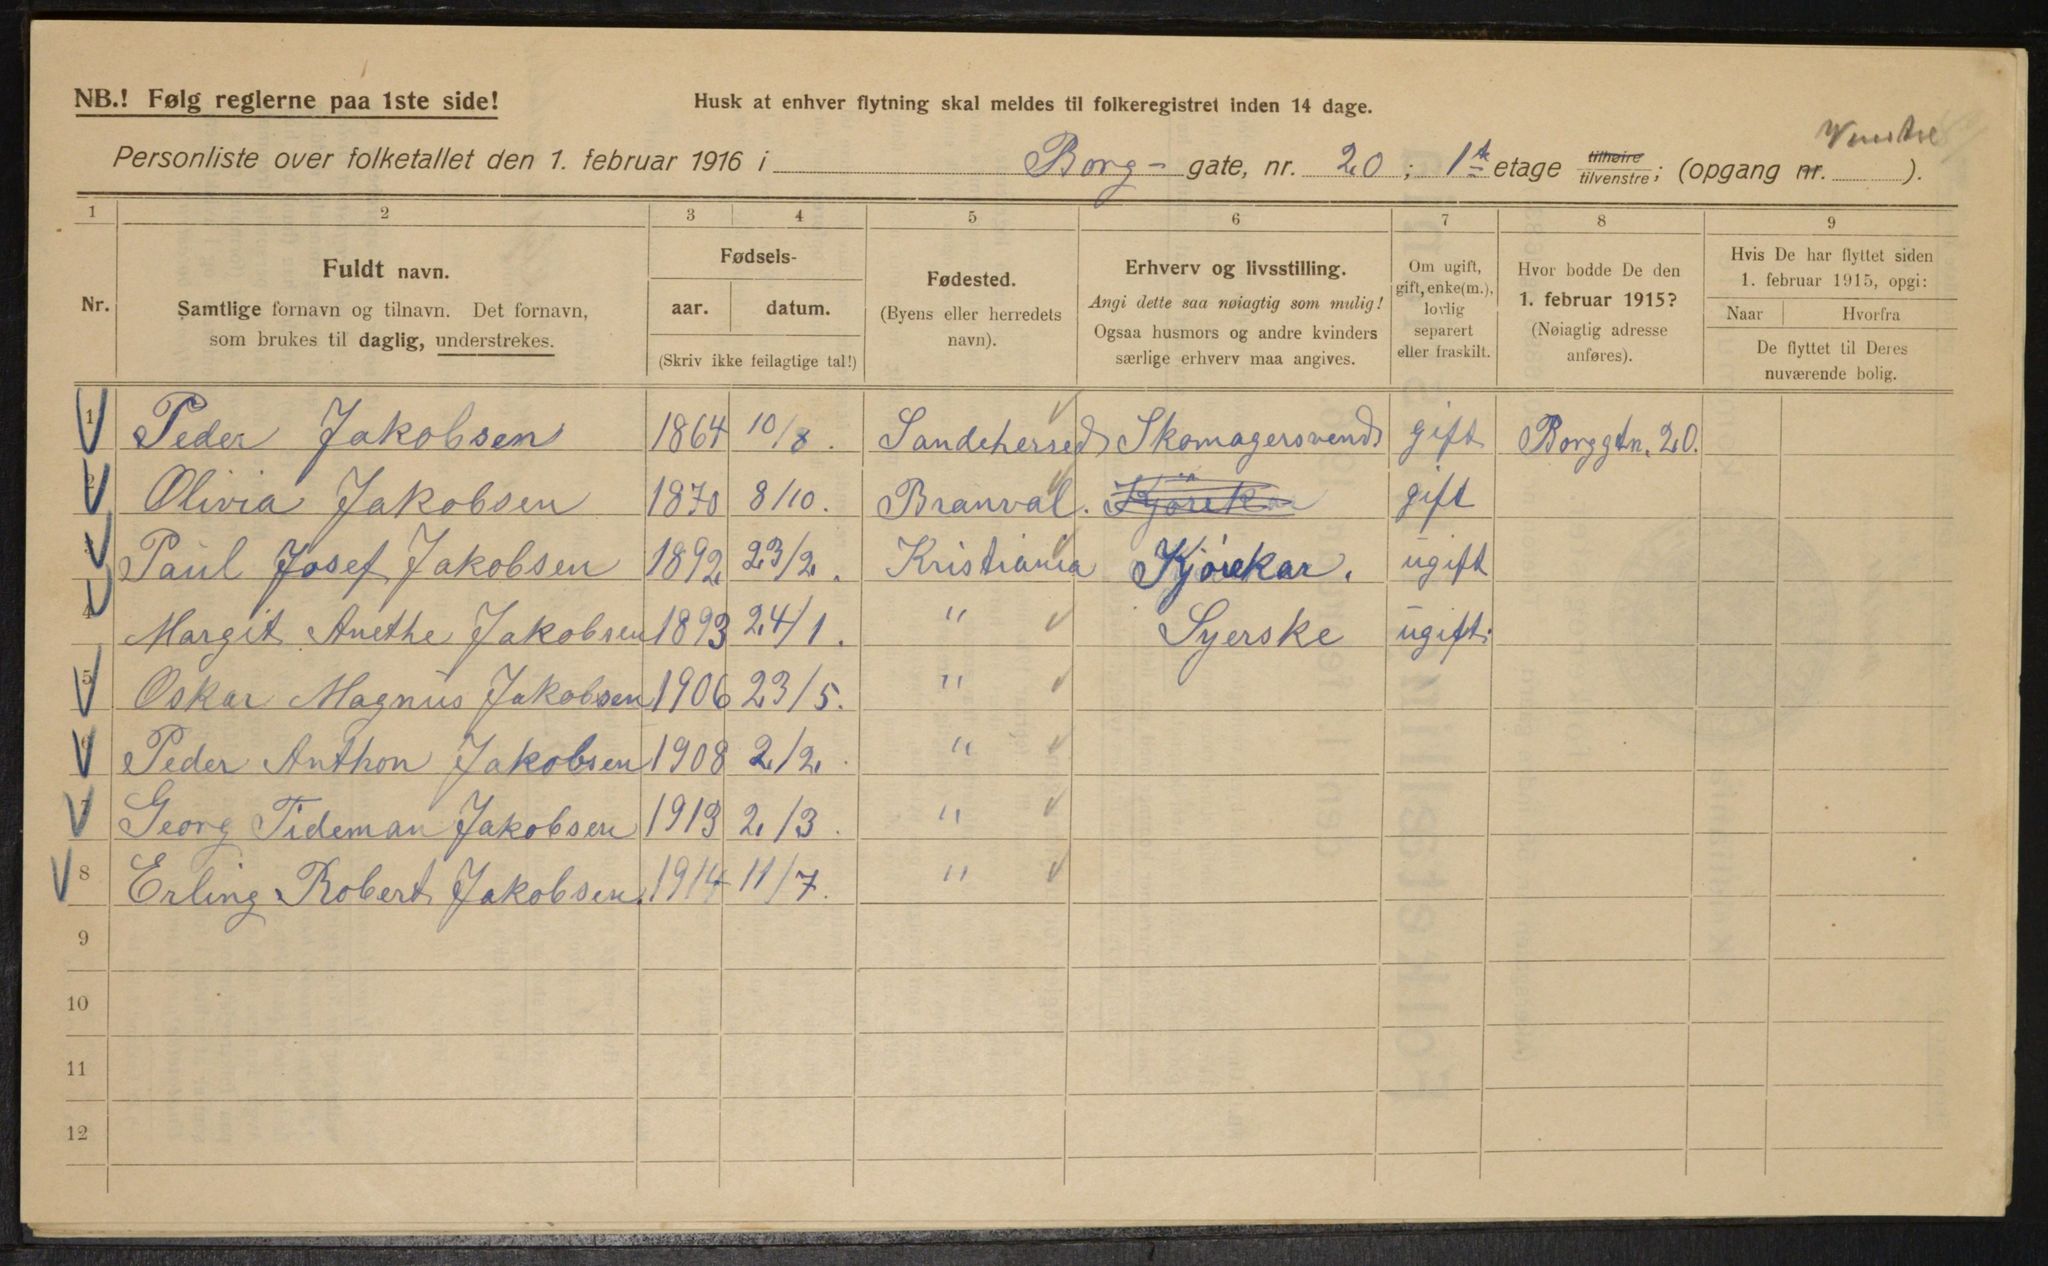 NB.! Følg reglerne paa 1ste side!
Husk at enhver flytning skal meldes til folkeregistret inden 14 dage.
Venstre
Personliste over folketallet den 1. februar 1916 i Borg- gate, nr. 20; 1ste etage tilhøire tilvenstre; (opgang nr. ).
1 2 3 4 5 6 7 8 9
Nr.
Fuldt navn.
Samtlige fornavn og tilnavn. Det fornavn,
som brukes til daglig, understrekes.
Fødsels-
aar. datum.
(Skriv ikke feilagtige tal!)
Fødested.
(Byens eller herredets
navn).
Erhverv og livsstilling.
Angi dette saa nøiagtig som mulig!
Ogsaa husmors og andre kvinders
særlige erhverv maa angives.
Om ugift,
gift, enke(m.),
lovlig
separert
eller fraskilt.
Hvor bodde De den
1. februar 1915?
(Nøiagtig adresse
anføres).
Hvis De har flyttet siden
1. februar 1915, opgi:
Naar Hvorfra
De flyttet til Deres
nuværende bolig.
1 Peder Jakobsen 1864 10/8. Sandeherred Skomagersvend gift Borggtn. 20.
2 Olivia Jakobsen 1870 8/10. Branval. gift
3 Paul Josef Jakobsen 1892 23/2. Kristiania Kjørekar. ugift
4 Margit Anethe Jakobsen 1893 24/1. " Syerske ugift.
5 Oskar Magnus Jakobsen 1906 23/5. "
6 Peder Anthon Jakobsen 1908 2/2. "
7 Georg Tideman Jakobsen 1913 2/3. "
8 Erling Robert Jakobsen. 1914 11/7. "
9
10
11
12